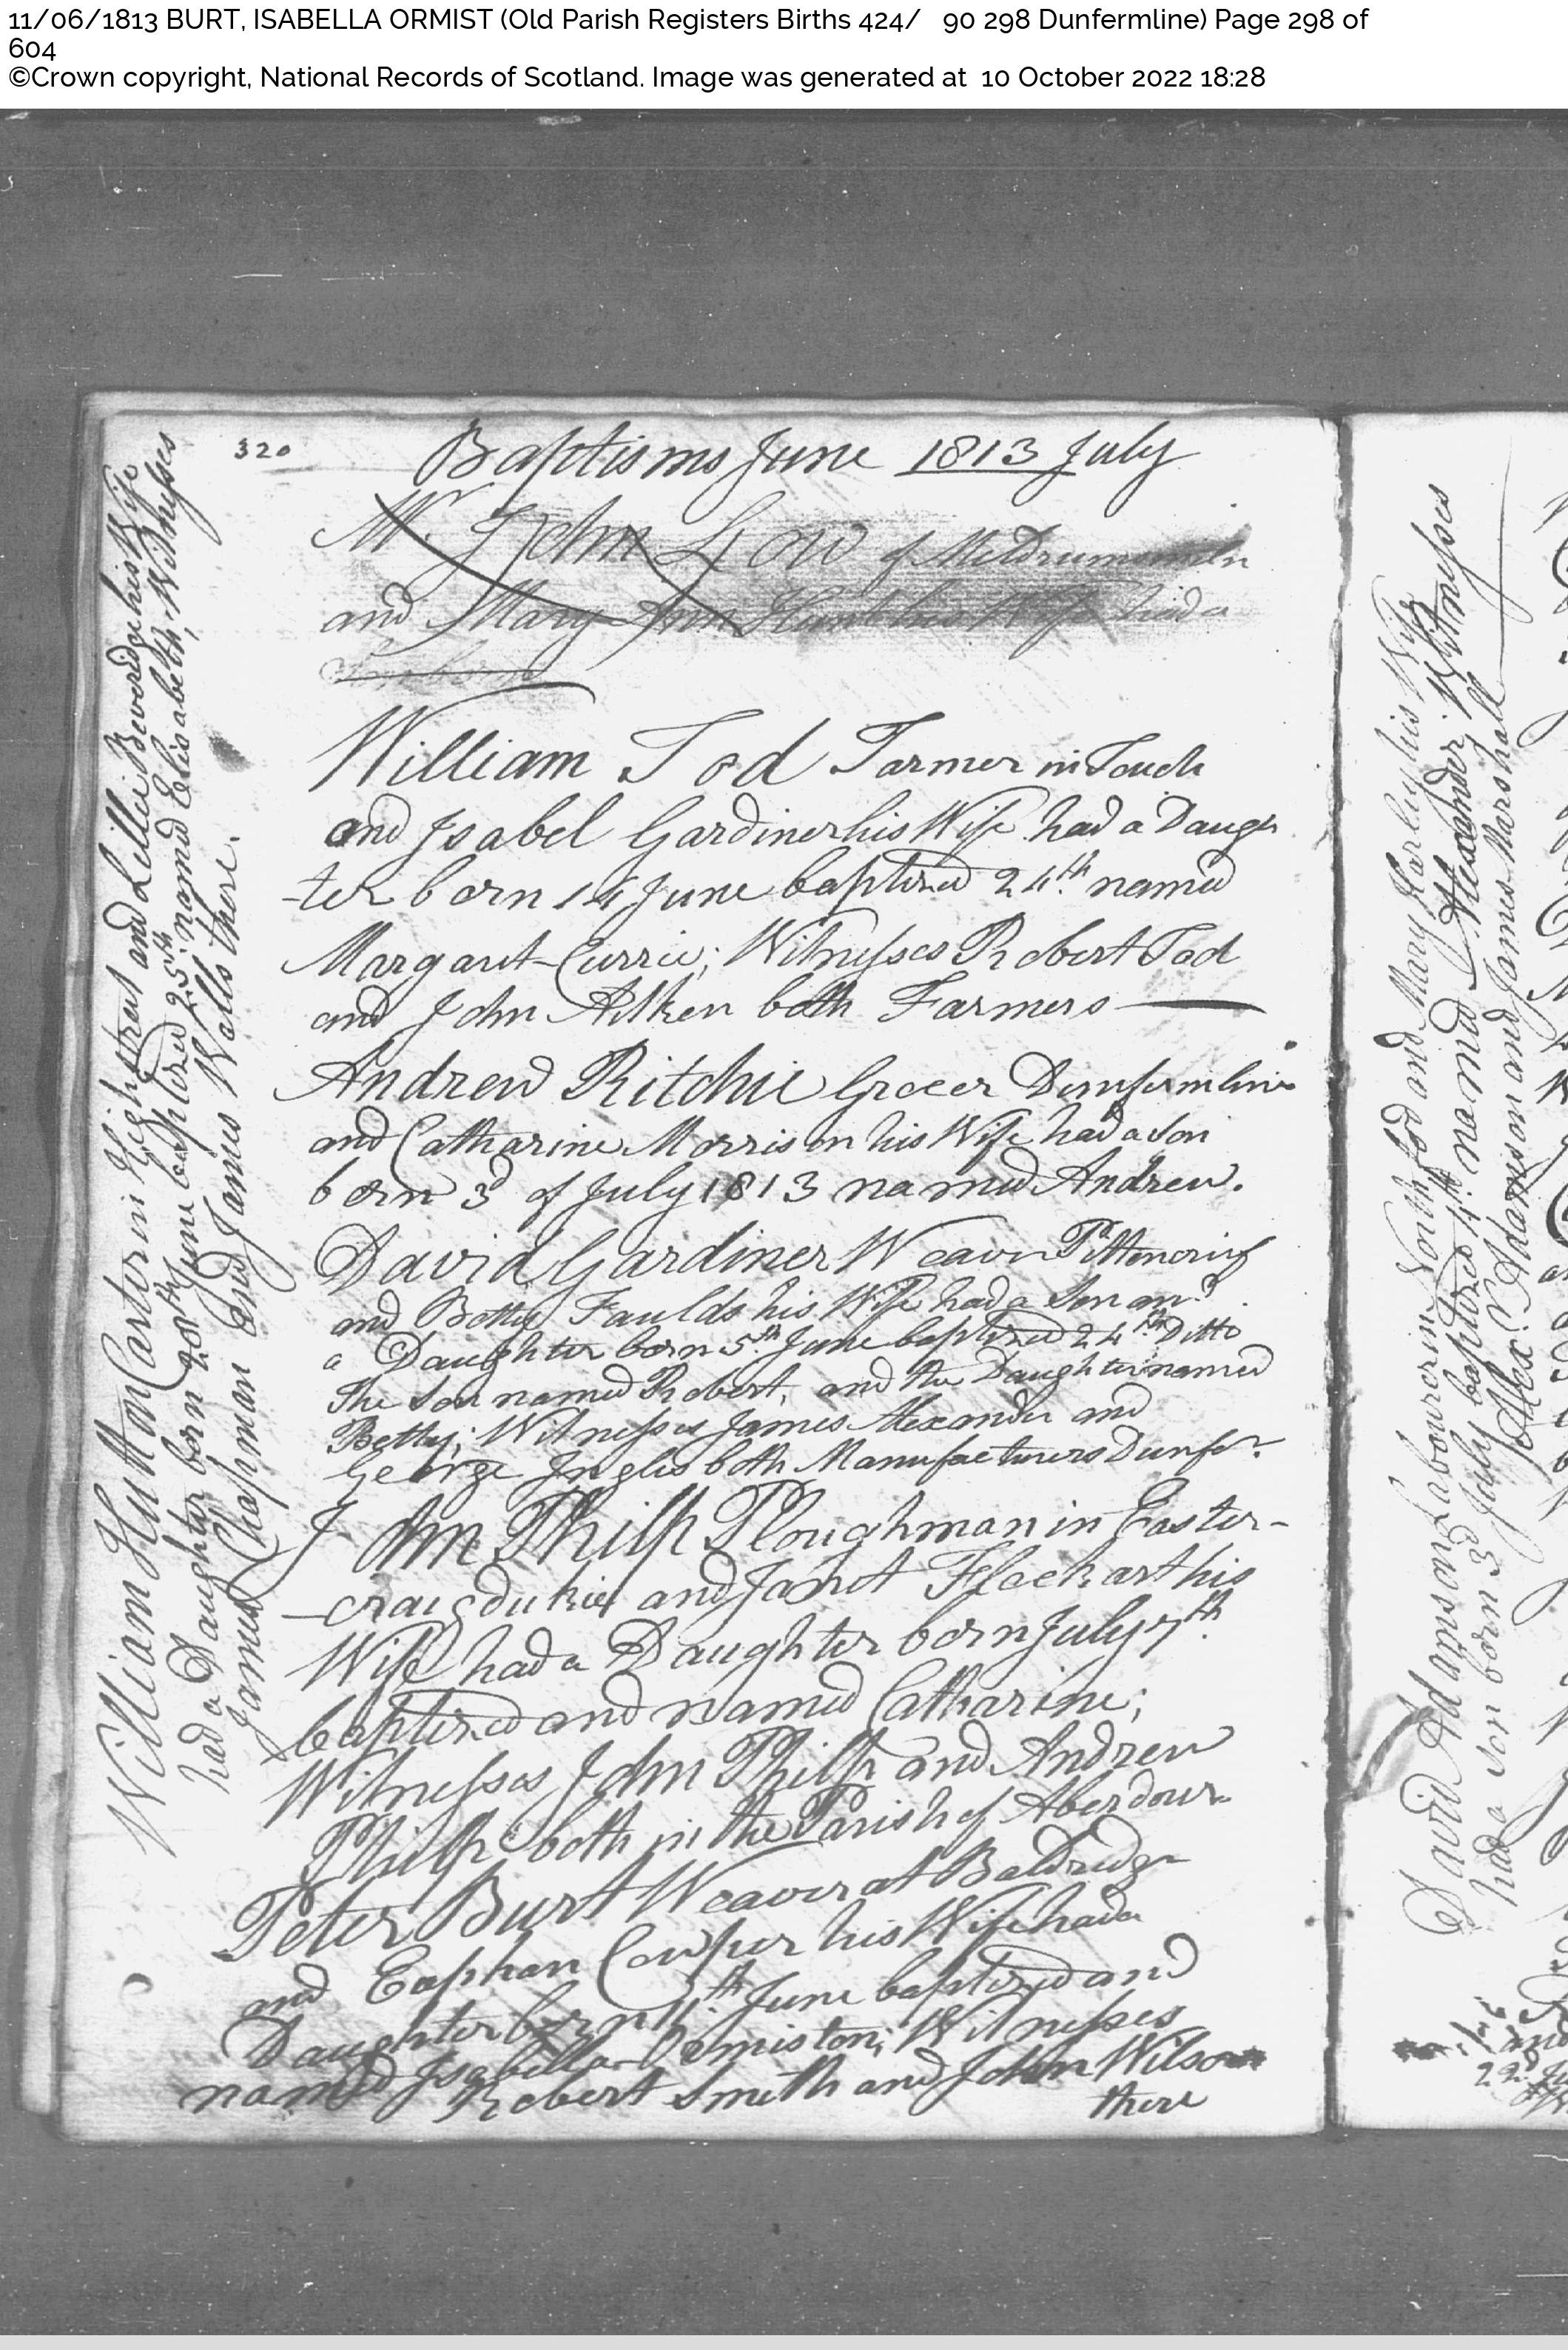 11/06/1813 BURT, ISABELLA ORMIST (Old Parish Registers Births 424/ 90 298 Dunfermline) Page 298 of
604
©Crown copyright, National Records of Scotland. Image was generated at 10 October 2022 18:28
320
Baptisms June 1813 July
Mr. John Low of
and Mary Ann Hunt his Wife had a
Son born
William Tod Farmer in Touch
and Isabel Gardiner his Wife had a Daugh
-ter born 14 June baptized 24th. named
Margaret Currie; Witnesses Robert Tod
and John Aitken both Farmers
Andrew Ritchie Grocer Dunfermline
and Catharine Morrison his Wife had a Son
born 3d of July 1813 named Andrew.
David Gardiner Weaver
and Betty Faulds his Wife had a Son and
a Daughter born 5th. June baptized 24th. Ditto
The Son named Robert, and the Daughter named
Betty; Witnesses James Alexander and
George Inglis both Manufacturers Dunfer.
John Philp Ploughman in Easter-
-craigdukie and Janet Fleckart his
Wife had a Daughter born July 7th.
baptized and named Catharine;
Witnesses John Philp and Andrew
Philp both in the Parish of Aberdour
Peter Burt Weaver at Baldridge
and Eophan Cowper his Wife had a
Daughter born 11th. June baptized and
named Isabella Ormiston; Witnesses
Robert Smith and John Wilson
there
William Hutton Carter in High street and Lillie Beveridge his Wife
had a Daughter born 20th June baptized 25th. named Elisabeth, Witnesses
James Chapman and James Walls there.
David Adamson Labourer in South fod and Mary Harley his Wife
had a Son born 3d July baptized 4th. named Alexander; Witnesses
Alexr. Adamson and James Marshall